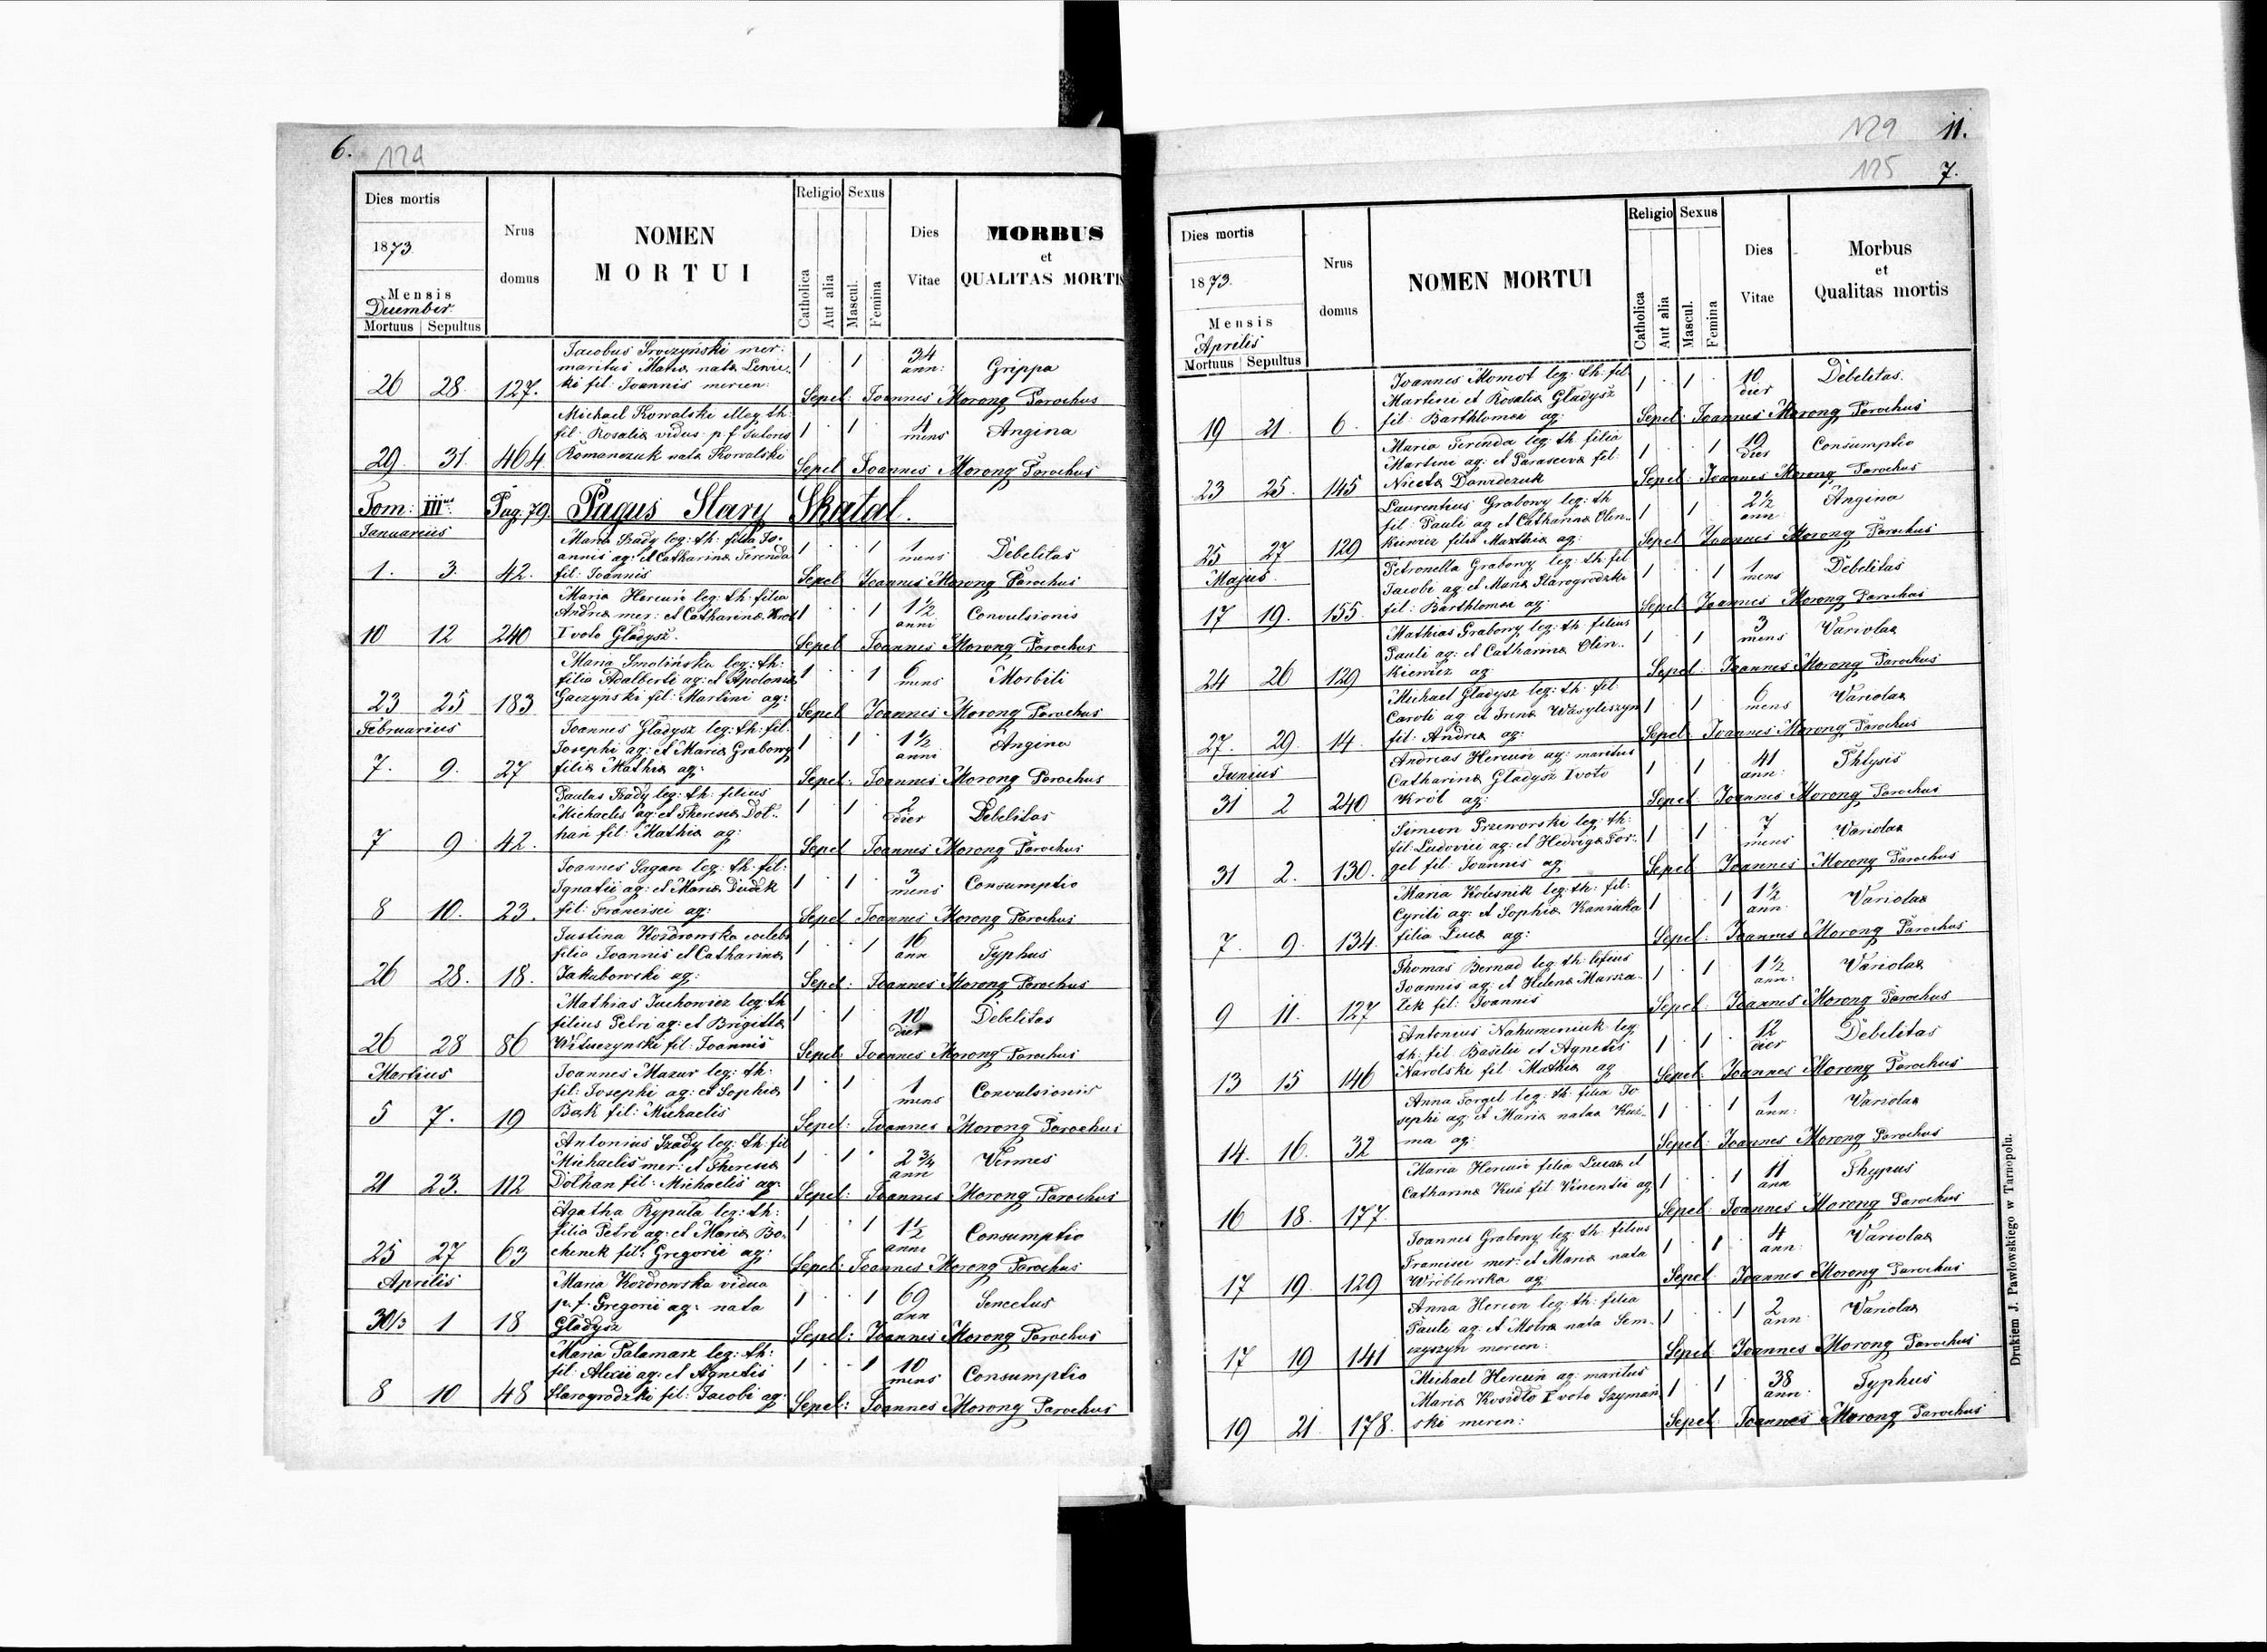 6. 124
Dies mortis
1873.
Mensis
December.
Mortuus Sepultus
Nrus
domus
NOMEN
MORTUI
Religio
Catholica
Aut alia
Sexus
Mascul.
Femina
Dies
Vitae
MORBUS
et
QUALITAS MORTIS
Jacobus Sroczyński mer:
maritus Mariæ natæ Lewic-
26 28. 127. ki fil: Joannis mercen: 1 1 34 ann: Grippa
Sepel: Joannes Morong Parochus
Michael Kowalski illeg th:
fil: Rosaliæ viduæ p. f. sutoris
29. 31. 464 Romanczuk nata Kowalski 1 1 4 mens Angina
Sepel Joannes Morong Parochus
Tom: IIIus Pag: 79. Pagus Stary Skałat.
Januarius
Maria Szady leg: th: filia Jo-
annis ag: et Catharinæ Ferenda
1. 3. 42. fil: Joannis 1 1 1 mens Debelitas
Sepel Joannes Morong Parochus
Maria Hercuń leg: th: filia
Andreæ mer: et Catharinæ Krol
10 12 240 I voto Gładysz. 1 1 1 1/2 anni Convulsionis
Sepel Joannes Morong Parochus
Maria Smolińska leg: th:
filia Adalberti ag: et Apoloniæ
23 25 183 Gaczyński fil: Martini ag: 1 1 6 mens Morbili
Sepel Joannes Morong Parochus
Februarius
Joannes Gładysz leg: th: fil:
Josephi ag: et Mariæ Grabowy
7. 9. 27 filiæ Mathiæ ag: 1 1 1 1/2 anni Angina
Sepel: Joannes Morong Parochus
Paulus Szady leg: th: filius
Michaelis ag: et Theresiæ Doł-
7 9 42. han fil: Mathiæ ag: 1 1 2 dier Debelitas
Sepel Joannes Morong Parochus
Joannes Sagan leg: th: fil:
Ignatii ag: et Mariæ Dudek
8 10. 23. fil: Francisci ag: 1 1 3 mens Consumptio
Sepel Joannes Morong Parochus
Justina Kozdrowska coelebs
filia Joannis et Catharinæ
26 28. 18. Jakubowski ag: 1 1 16 ann Typhus
Sepel: Joannes Morong Parochus
Mathias Juchowicz leg: th
filius Petri ag: et Brigittæ
26 28 86 fil: Joannis 1 1 10 dier Debelitas
Sepel: Joannes Morong Parochus
Martius
Joannes Mazur leg: th:
fil: Josephi ag: et Sophiæ
5 7. 19 Bąk fil: Michaelis 1 1 1 mens Convulsionis
Sepel: Joannes Morong Parochus
Antonius Szady leg: th: fil
Michaelis mer: et Theresiæ
21 23. 112 Dołhan fil: Michaelis ag: 1 1 2 3/4 ann Vermes
Sepel: Joannes Morong Parochus
Agatha Rypuła leg: th:
filia Petri ag: et Mariæ Bo-
25 27 63 chenek fil: Gregorii ag: 1 1 1 1/2 anni Consumptio
Sepel: Joannes Morong Parochus
Aprilis
Maria Kozdrowska vidua
p. f. Gregorii ag: nata
30/3 1 18 Gładysz 1 1 69 ann Senectus
Sepel: Joannes Morong Parochus
Maria Pałamarz leg: th:
fil: Alexii ag: et Agnetis
8 10 48 Starogrodzki fil: Jacobi ag: 1 1 10 mens Consumptio
Sepel: Joannes Morong Parochus
129 11.
125 7.
Dies mortis
1873.
Mensis
Aprilis
Mortuus Sepultus
Nrus
domus
NOMEN MORTUI
Religio
Catholica
Aut alia
Sexus
Mascul.
Femina
Dies
Vitae
Morbus
et
Qualitas mortis
Joannes Momot leg: th: fil
Martini et Rosaliæ Gładysz
19 21. 6. fil: Barthlomæi ag: 1 1 10 dier Debelitas.
Sepel: Joannes Morong Parochus
Maria Ferenda leg: th: filia
Martini ag: et Parascevæ fil
23 25. 145 Nicetæ Dawidczuk 1 1 19 dier Consumptio
Sepel: Joannes Morong Parochus
Laurentius Grabowy leg: th
fil: Pauli ag et Catharinæ Olin-
25 27 129 kiewicz filiæ Mathiæ ag: 1 1 2 1/2 ann Angina
Sepel Joannes Morong Parochus
Majus.
Petronella Grabowy leg: th: fil
Jacobi ag et Mariæ Starogrodzki
17 19. 155. fil: Barthlomæi ag: 1 1 1 mens Debelitas
Sepel Joannes Morong Parochus
Mathias Grabowy leg: th: filius
Pauli ag: et Catharinæ Olin-
24 26 129 kiewicz ag: 1 1 3 mens Variolaæ
Sepel: Joannes Morong Parochus
Michael Gładysz leg: th: fil
Caroli ag. et Irenæ Wasyliszyn
27. 29. 14. fil: Andreæ ag: 1 1 6 mens Variolaæ
Sepel: Joannes Morong Parochus
Junius
Andreas Hercuń ag: maritus
Catharinæ Gładysz I voto
31 2 240 Król ag: 1 1 41 ann: Phtysis
Sepel: Joannes Morong Parochus
Simeon Przeworski leg: th:
fil: Ludovici ag: et Hedvigæ For-
31 2. 130. gel fil: Joannis ag. 1 1 7 mens Variolaæ
Sepel: Joannes Morong Parochus
Maria Kolesnik leg: th: fil:
Cyrili ag: et Sophiæ Kaniuka
7. 9. 134. filia Lucæ ag: 1 1 1 1/2 ann: Variolaæ
Sepel: Joannes Morong Parochus
Thomas Bernad leg: th: lifius
Joannis ag: et Helenæ Marsza-
9 11. 127 łek fil: Joannis 1 1 1 1/2 ann: Variolaæ
Sepel: Joannes Morong Parochus
Antonius Nahumeniuk leg
th: fil: Basilii et Agnetis
13 15 146 Narolski fil: Mathiæ ag 1 1 12 dier Debelitas
Sepel: Joannes Morong Parochus
Anna Forgel leg: th: filia Jo-
sephi ag: et Mariæ natæ Kuź-
14. 16. 32 ma ag: 1 1 1 ann: Variolaæ
Sepel: Joannes Morong Parochus
Maria Hercuń filia Lucæ et
Catharinæ Kuś fil Vincentii ag
16 18. 177. 1 1 11 ann Thypus
Sepel: Joannes Morong Parochus
Joannes Grabowy leg: th: filius
Francisci mer: et Mariæ nata
17 19. 129 Wróblewska ag: 1 1 4 ann: Variolaæ
Sepel: Joannes Morong Parochus
Anna Hercon leg: th: filia
Pauli ag: et nata Sem-
17 19 141 czyszyn mercen: 1 1 2 ann: Variolaæ
Sepel: Joannes Morong Parochus
Michael Hercuń ag: maritus
Mariæ Kosidło I voto Szymań
19 21. 178. ski mercen: 1 1 38 ann: Typhus
Sepel: Joannes Morong Parochus
Drukiem J. Pawłowskiego w Tarnopolu.